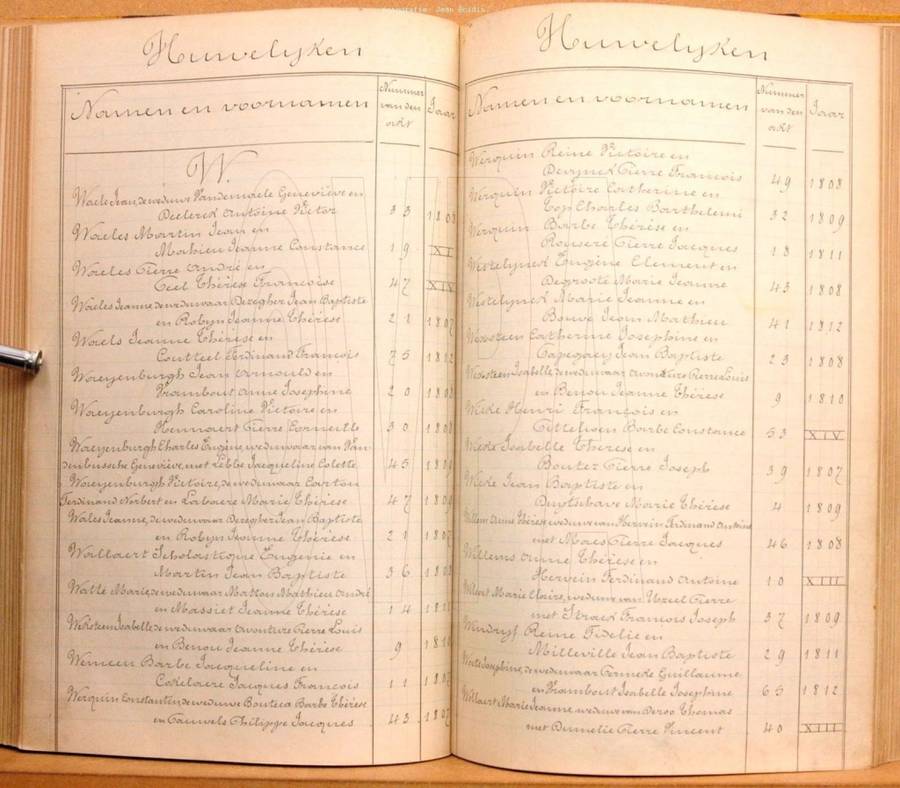 Jean
Huwelyken
Namen en voornamen
Nummer van den akt
Jaar
W.
Waele Jean, de weduwe Vandemaele Geneviève en
Declerck Antoine Victor 33
Waeles Martin Jean en
Mahieu Jeanne Constance 19 XI
Waeles Pierre André en
Ceel Thérèse Françoise 47 XIV
Waeles Jeanne de weduwaar Dezegher Jean Baptiste
en Robyn Jeanne Thérèse 21 1807
Waels Jeanne Thérèse en
Coutteel Ferdinand François 75 1812
Waeyenburgh Jean Arnould en
Vrambout Anne Josephine 20
Waeyenburgh Caroline Victoire en
Hennaert Pierre Corneille 30
Waeyenburgh Charles Eugène weduwaar van Van
denbussche Geneviève, met Lebbe Jacqueline Colette 45
Waeyenburgh Victoire, de weduwaar Carton
Ferdinand Norbert en Labaere Marie Thérèse 47
Wales Jeanne, de weduwaar Dezegher Jean Baptiste
en Robyn Jeanne Thérèse 21 1807
Wallaert Scholastique Eugenie en
Martin Jean Baptiste 36
Walle Marie, de weduwaar Mathieu André
en Massiet Jeanne Thérèse 14
Weksteen Isabelle de weduwaar Avonture Pierre Louis
en Benou Jeanne Thérèse 9 1810
Wemeen Barbe Jacqueline en
Cokelaere Jacques François 11
Werquin Constantin, de weduwe Boutea Barbe Thérèse
en Cauwels Philippe Jacques 43 1807
Huwelyken
Namen en voornamen
Nummer van den akt
Jaar
Werquin Reine Victoire en
Devynck Pierre François 49 1808
Werquin Victoire Catherine en
Top Charles Barthelemi 32 1809
Werquin Barbe Thérèse en
Ruysere Pierre Jacques 18 1811
Westelynck Eugène Clement en
Degroote Marie Jeanne 43 1808
Westelynck Marie Jeanne en
Bouve Jean Mathieu 41 1812
Weksteen Catherine Josephine en
Capegaey Jean Baptiste 23 1808
Weksteen Isabelle, de weduwaar Avonture Pierre Louis
en Benou Jeanne Thérèse 9 1810
Henri François en
Barbe Constance 53 XIV
Isabelle Thérèse en
Boutez Pierre Joseph 39 1807
Jean Baptiste en
Duytschave Marie Thérèse 4 1809
Willem Anne Thérèse weduwe van Hervein Ferdinand Antoine
met Maes Pierre Jacques 46 1808
Willems Anne Thérèse en
Hervein Ferdinand Antoine 10 XIII
Willaert Marie Claire, weduwe van Pierre
met Strack François Joseph 37 1809
Windryf Reine Fidelie en
Milleville Jean Baptiste 29 1811
Josephine, de weduwaar Guillaume
en Vrambout Isabelle Josephine 65 1812
Willaert Marie Jeanne weduwe van Deroo Thomas
met Pierre Vincent 40 XIII